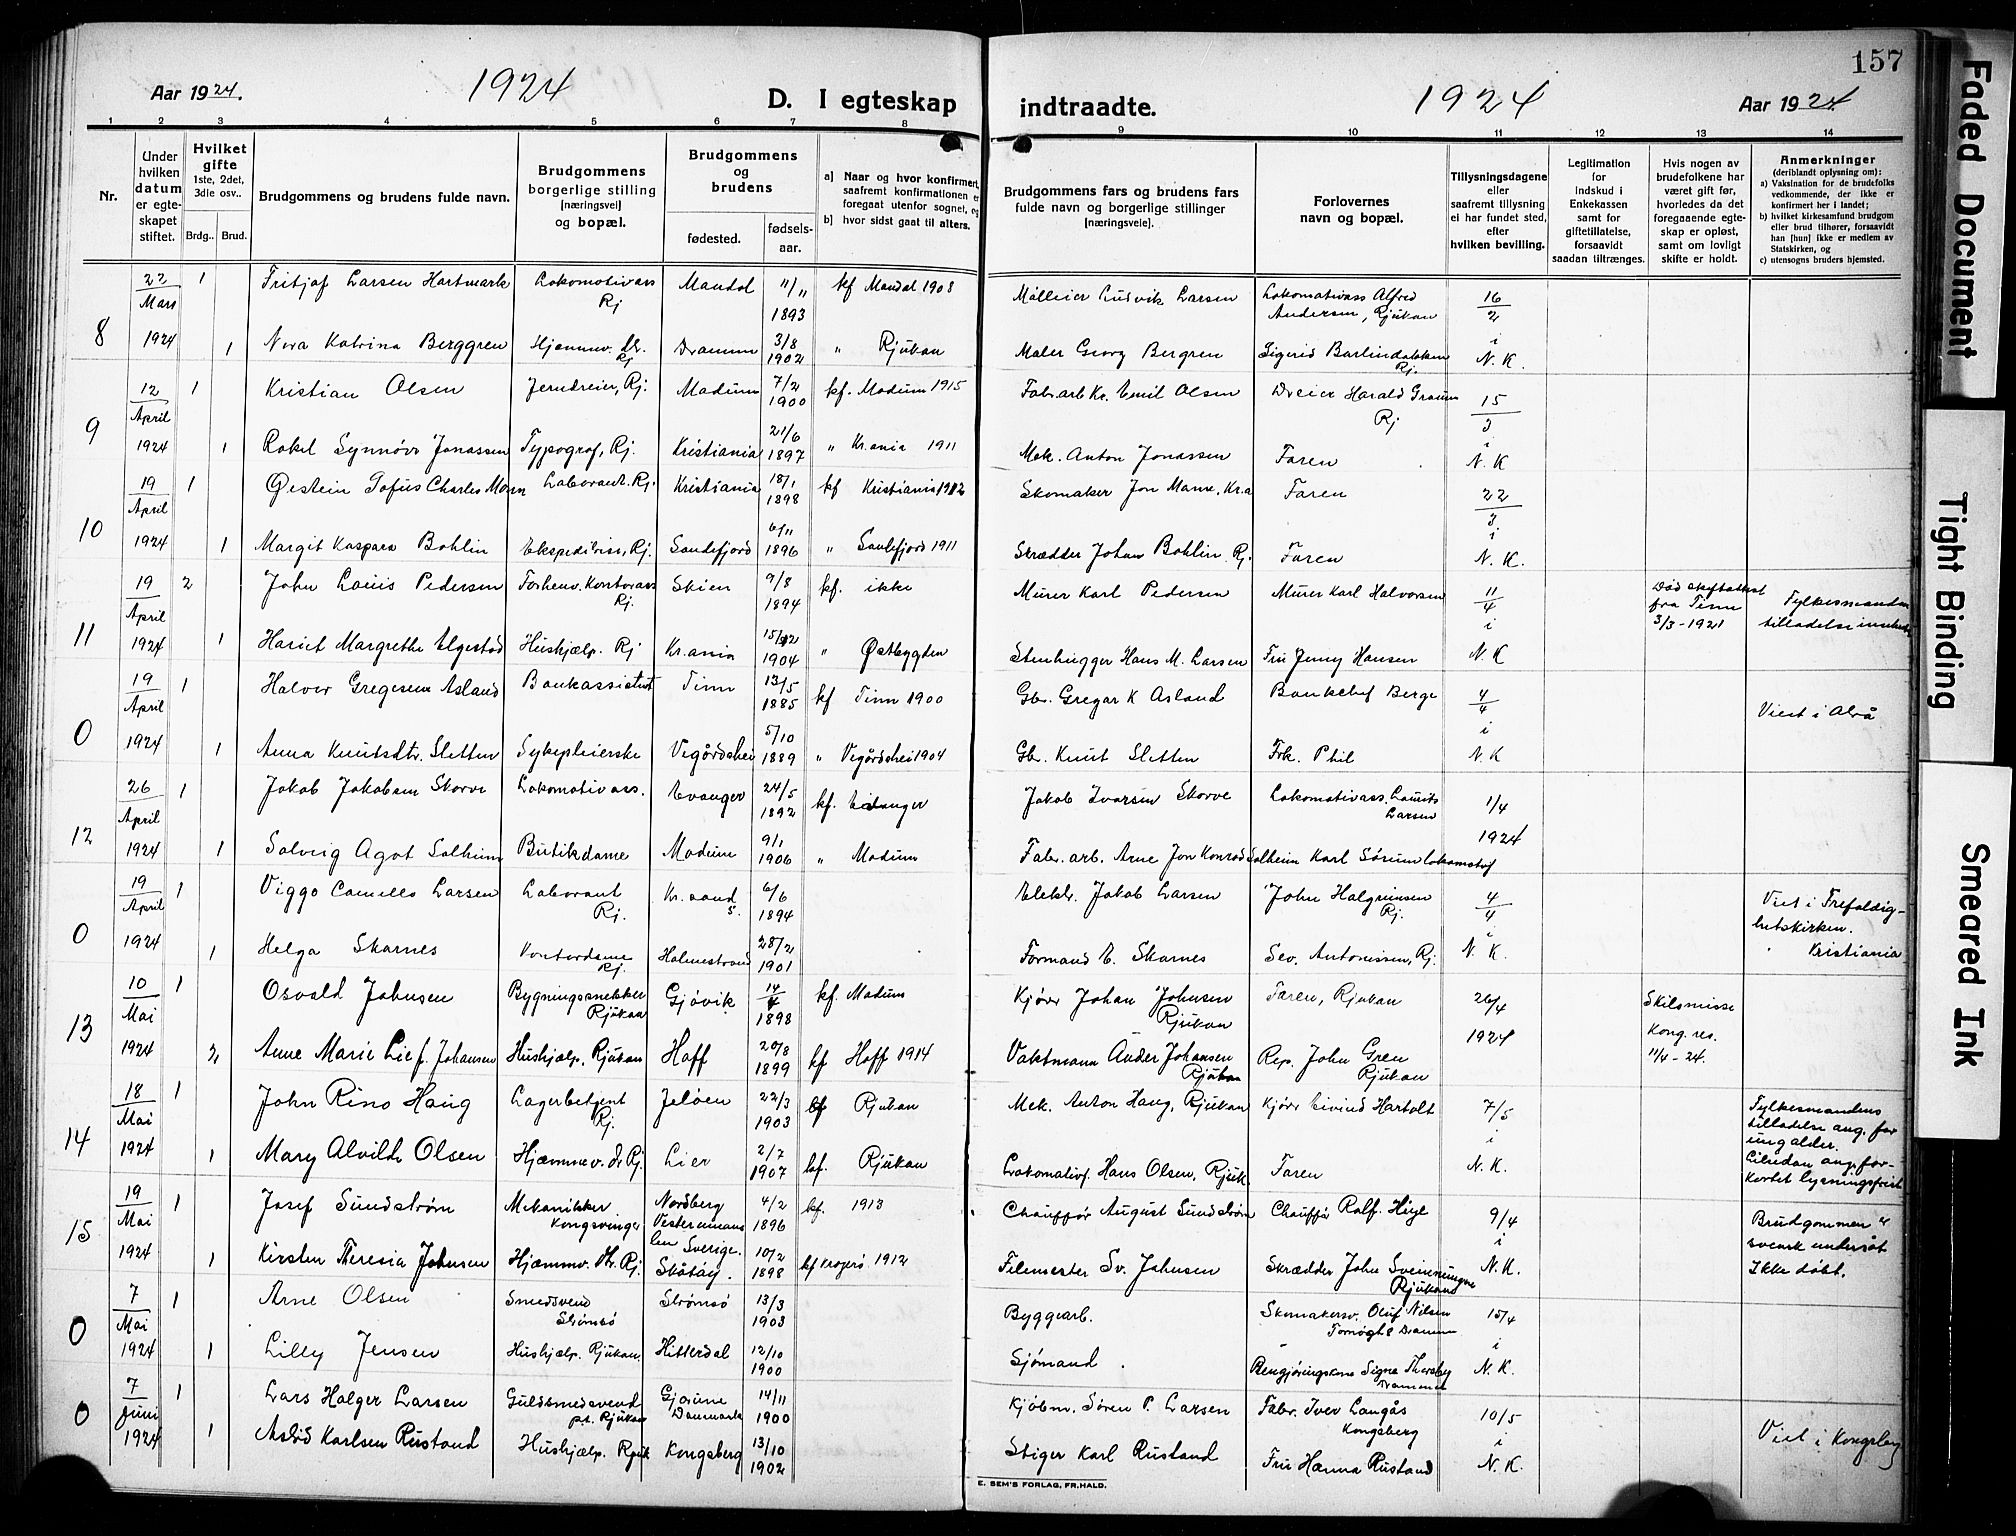 157
Aar 1924.
1924
D. I egteskap
indtraadte.
1924
Aar 1924
1 2 3 4 5 6 7 8 9 10 11 12 13 14
Nr.
Under hvilken datum er egteskapet stiftet.
Hvilket gifte 1ste, 2det, 3dle osv..
Brdg.. Brud.
Brudgommens og brudens fulde navn.
Brudgommens borgerlige stilling [næringsvei] og bopæl.
Brudgommens og brudens
fødested.
fødselsaar.
a) Naar og hvor konfirmert, saafremt konfirmationen er foregaat utenfor sognet, og
b) hvor sidst gaat til alters.
Brudgommens fars og brudens fars fulde navn og borgerlige stillinger [næringsveie].
Forlovernes navn og bopæl.
Tillysningsdagene eller saafremt tillysning ei har fundet sted, efter hvilken bevilling.
Legitimation for Indskud i Enkekassen samt for giftetillatelse, forsaavidt saadan tiltrænges.
Hvis nogen av brudefolkene har været gift før, hvorledes da det foregaaende egteskap er opløst, samt om lovligt skifte er holdt.
Anmerkninger (deriblandt oplysning om):
a) Vaksination for de brudefolks vedkommende, der ikke er konfirmert her i landet;
b) hvilket kirkesamfund brudgom eller brud tilhører, forsaavidt han [hun] ikke er medlem av Statskirken, og
c) utensogns bruders hjemsted.
8 22 Mars 1924 1 Fritjof Larsen Hartmark Lokomotivass Rj Mandal 11/11 1893 kf Mandal 1908 Mølleier Ludvik Larsen Lokomotivass Alfred Andersen, Rjukan 16/2
1 Nora Katrina Berggren Hjemmev. Dr. Rj Drammen 3/8 1902 " Rjukan Maler Georg Bergren Sigrid Rj. i N.K.
9 12 April 1924 1 Kristian Olsen Jerndreier, Rj. Modum 7/2 1900 kf. Modum 1915 Fabr.arb Kr. Emil Olsen Dreier Harald Rj 15/3
1 Rakel Synnøve Jonassen Typograf, Rj. Kristiania 21/6 1897 " Kr.ania 1911 Mek. Anton Jonassen Faren i N.K
10 19 April 1924 1 Øistein Tofus Charles Laborant. Rj. Kristiania 18/1 1898 kf Kristiania 1912 Skomaker Jon Kr.a Faren 22/3
1 Margit Kaspara Bohlin Rj. Sandefjord 6/11 1896 " Sandefjord 1911 Skrædder Johan Bohlin Rj. Faren i N.K.
11 19 April 1924 2 John Louis Pedersen Forhenv. Kontorass Rj. Skien 9/8 1894 kf. ikke Murer Karl Pedersen Murer Karl Halvorsen 11/4 fra Tinn 3/3-1921 Fylkesmanden tilladelse
1 Hariet Margrethe Elgestad Hushjælp. Rj Kr.ania 1904 " Østbygden Stenhugger Hans M. Larsen Fru Jenny Hansen i N.K
0 19 April 1924 1 Halvor Gregesen Asland Bankassistent Tinn 13/5 1885 kf Tinn 1900 Gbr. Gregar K Asland Banksjef Berge 4/4 Viet i Atrå
1 Anna Knutsdtr. Sletten Sykepleierske Vegårdshei 5/10 1889 " Vegårdshei 1904 Gbr. Knut Sletten Frk. Phil i N.K
12 26 April 1924 1 Jakob Jakobsen Skorve Lokomotivass. Evanger 24/5 1892 kf. Jakob Ivarsen Skorve Lokomotivass. Laurits Larsen 1/4 1924
1 Solveig Agot Solheim Butikdame Modum 9/1 1906 " Modum Fabr. arb. Arne Jon Konrad Solheim Karl Sørum Lokomotivf
0 19 April 1924 1 Viggo Camillo Larsen Laborant Rj. Kr.sand S. 6/6 1894 Elektr. Jakob Larsen John Halgrimsen Rj. 4/4 Viet i Trefoldighetskirken. Kristiania
1 Helga Skarnes Kontordame Rj. Holmestrand 28/2 1901 Formand E. Skarnes Sev. Antonissen, Rj. N.K.
13 10 Mai 1924 1 Osvald Johnsen Bygningssnekker Rjukan Gjøvik 14/4 1898 kf. Modum Kjører Johan Johnsen Rjukan Faren, Rjukan 26/4 1924 Skilsmisse Kong. res. 11/4-24.
2 Anne Marie Lie f. Johansen Hushjælp, Rjukan Hoff 20/8 1899 kf Hoff 1914 Vaktmann Ander Johansen Rjukan Rep. John Gren Rjukan
14 18 Mai 1924 1 John Rino Haug Lagerbetjent Rj. Jeløen 22/3 1903 kf Rjukan Mek. Anton Haug, Rjukan Kjører Eivind Hartolt 7/5 Fylkesmandens tilladelse ang. for ung alder. Likedan ang. forkortet lysningsfrist
1 Mary Alvilde Olsen Hjemmev. dr Rj. Lier 2/7 1907 kf. Rjukan Lokomotivf. Hans Olsen, Rjuk. Faren i N.K.
15 19 Mai 1924 1 Josef Sundstrøm Mekanikker Kongsvinger Nordberg Sverige. 4/2 1896 kf. 1913 Chauffør August Sundstrøm Chauffør Ralf. 9/4 Brudgommen er svensk undersåt Ikke døbt.
1 Kirsten Theresia Johnsen Hjemmv. Dr. Rj. Skåtøy. 10/2 1898 kf Kragerø 1912 Filemester Sv. Johnsen Skrædder John Sveinungsen Rjukan i N.K.
0 7 Mai 1924 1 Arne Olsen Smedsvend Strømsø Strømsø 13/3 1903 Byggearb. Skomakersv. Oluf Nilsen Drammen 15/4
1 Lilly Jensen Hushjælp. Rjukan. Hitterdal 12/10 1900 Sjømand. Rengjøringskone Signe Drammen i N.K.
0 7 Juni 1924 1 Lars Halger Larsen Guldsmedsvend pt. Rjukan Danmark 14/11 1900 Kjøbm. Søren P. Larsen Fabr. Iver Langås Kongsberg 10/5 Viet i Kongsberg
1 Astrid Karlsen Rustand Hushjælp. Rjuk Kongsberg 13/10 1902 Stiger Karl Rustand Fru Hanna Rustand i N.K.
E. SEM'S FORLAG, FR.HALD.
Faded Document
Tight Binding
Smeared Ink